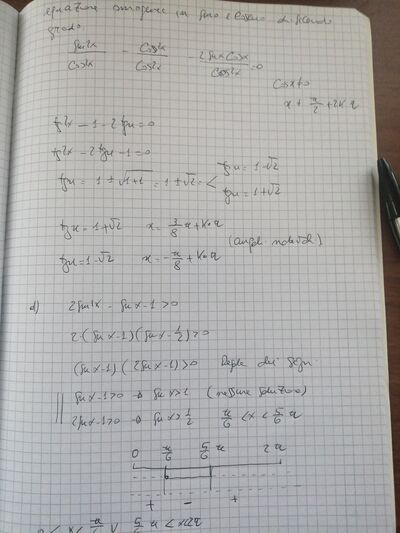 equazione omogenea in seno e coseno di secondo
grado.
sen²x/cos²x - cos²x/cos²x - 2senxcosx/cos²x = 0
cosx≠0
x ≠ π/2 + 2kπ
tg²x - 1 - 2tgx = 0
tg²x - 2tgx - 1 = 0
tgx = 1 ± √1+1 = 1 ± √2 = < tgx = 1-√2
tgx = 1+√2
tgx = 1+√2 x = 3/8 π + kπ
(angoli notevoli)
tgx = 1-√2 x = -π/8 + kπ
d) 2sen²x - senx - 1 > 0
2·(senx-1)(senx-1/2) > 0
(senx-1)(2senx-1) > 0 Regola dei segni
senx-1>0 → senx>1 (nessuna soluzione)
2senx-1>0 → senx>1/2 π/6 < x < 5/6 π
0 π/6 5/6 π 2π
+ - +
0 < x < π/6 ∨ 5/6 π < x < 2π